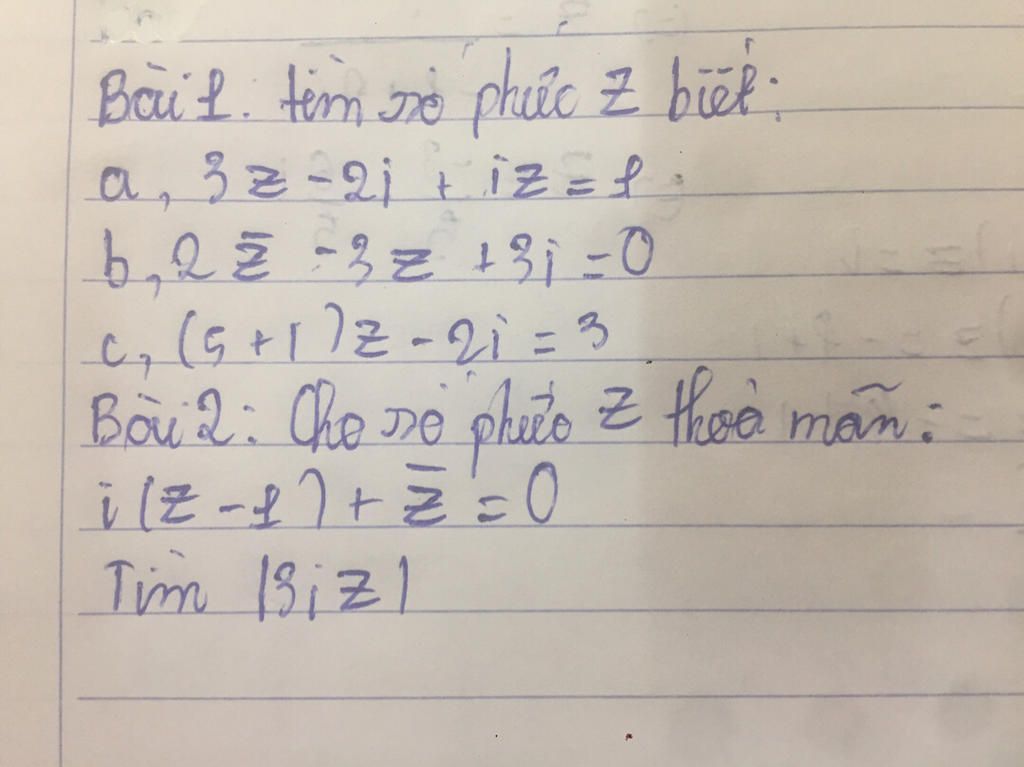 Bài 1. tìm số phức z biết:
a, 3z - 2i + iz = 1
b, 2z̄ - 3z + 3i = 0
c, (5 + 1)z - 2i = 3
Bài 2: Cho số phức z thoả mãn:
i(z - 1) + z̄ = 0
Tìm |3iz|